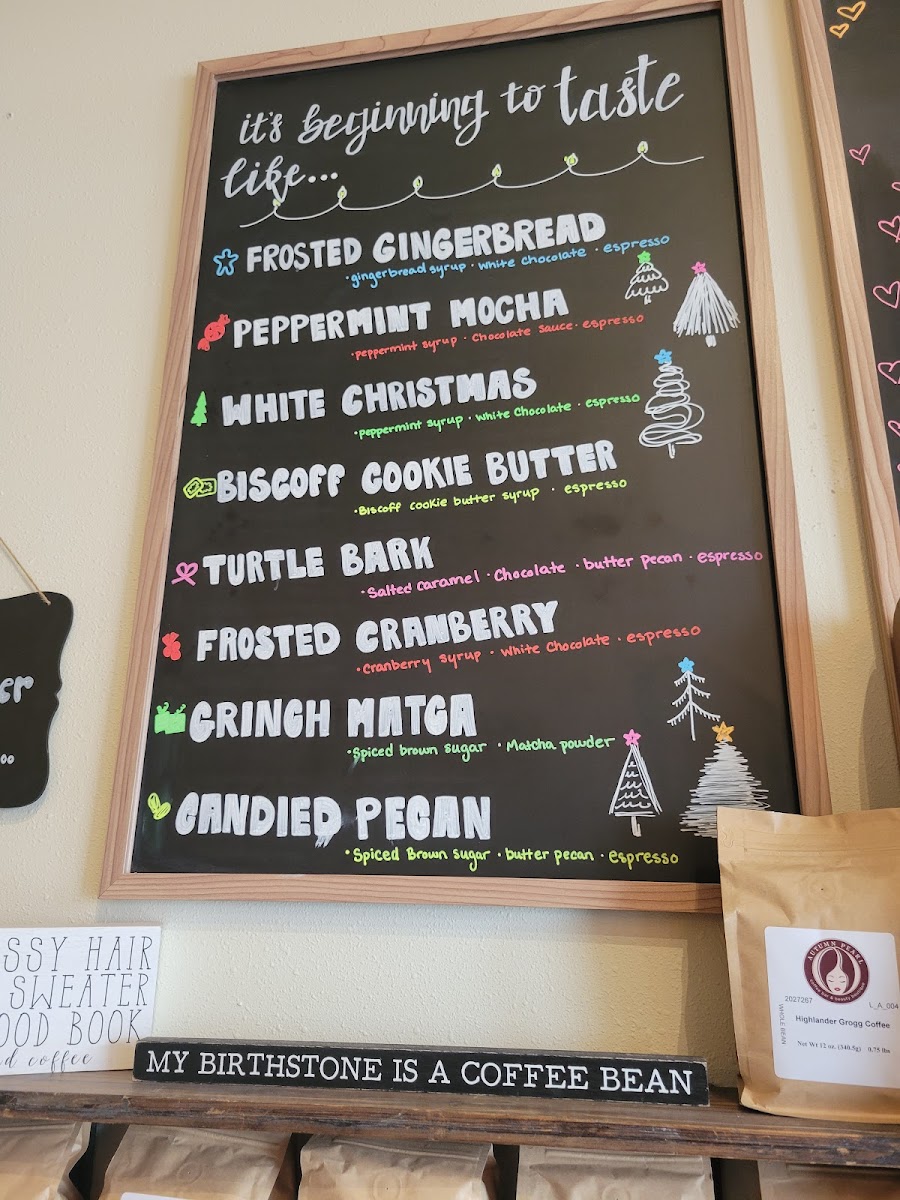 it's beginning to taste
like...
FROSTED GINGERBREAD
• gingerbread syrup • white chocolate • espresso
PEPPERMINT MOCHA
• peppermint syrup • Chocolate sauce • espresso
WHITE CHRISTMAS
• peppermint syrup • white chocolate • espresso
BISCOFF COOKIE BUTTER
• Biscoff cookie butter syrup • espresso
TURTLE BARK
• Salted caramel • Chocolate • butter pecan • espresso
FROSTED CRANBERRY
• Cranberry syrup • White Chocolate • espresso
GRINCH MATCA
• Spiced brown sugar • Matcha powder
CANDIED PECAN
• Spiced Brown sugar • butter pecan • espresso
er
oo
SSY HAIR
SWEATER
OOD BOOK
nd coffee
MY BIRTHSTONE IS A COFFEE BEAN
AUTUMN PEARL
2027267
L_A_004
WHOLE BEAN
Highlander Grogg Coffee
Net Wt 12 oz. (340.5g) 0.75 lbs